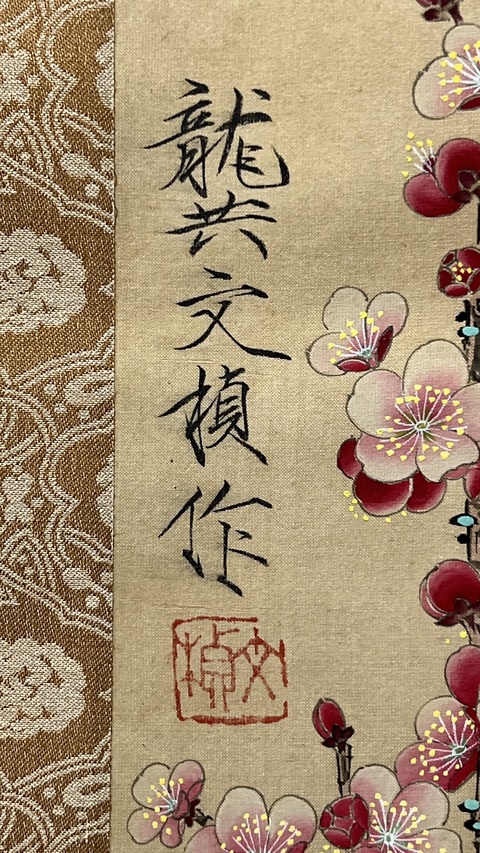 龍共文楨作
文楨